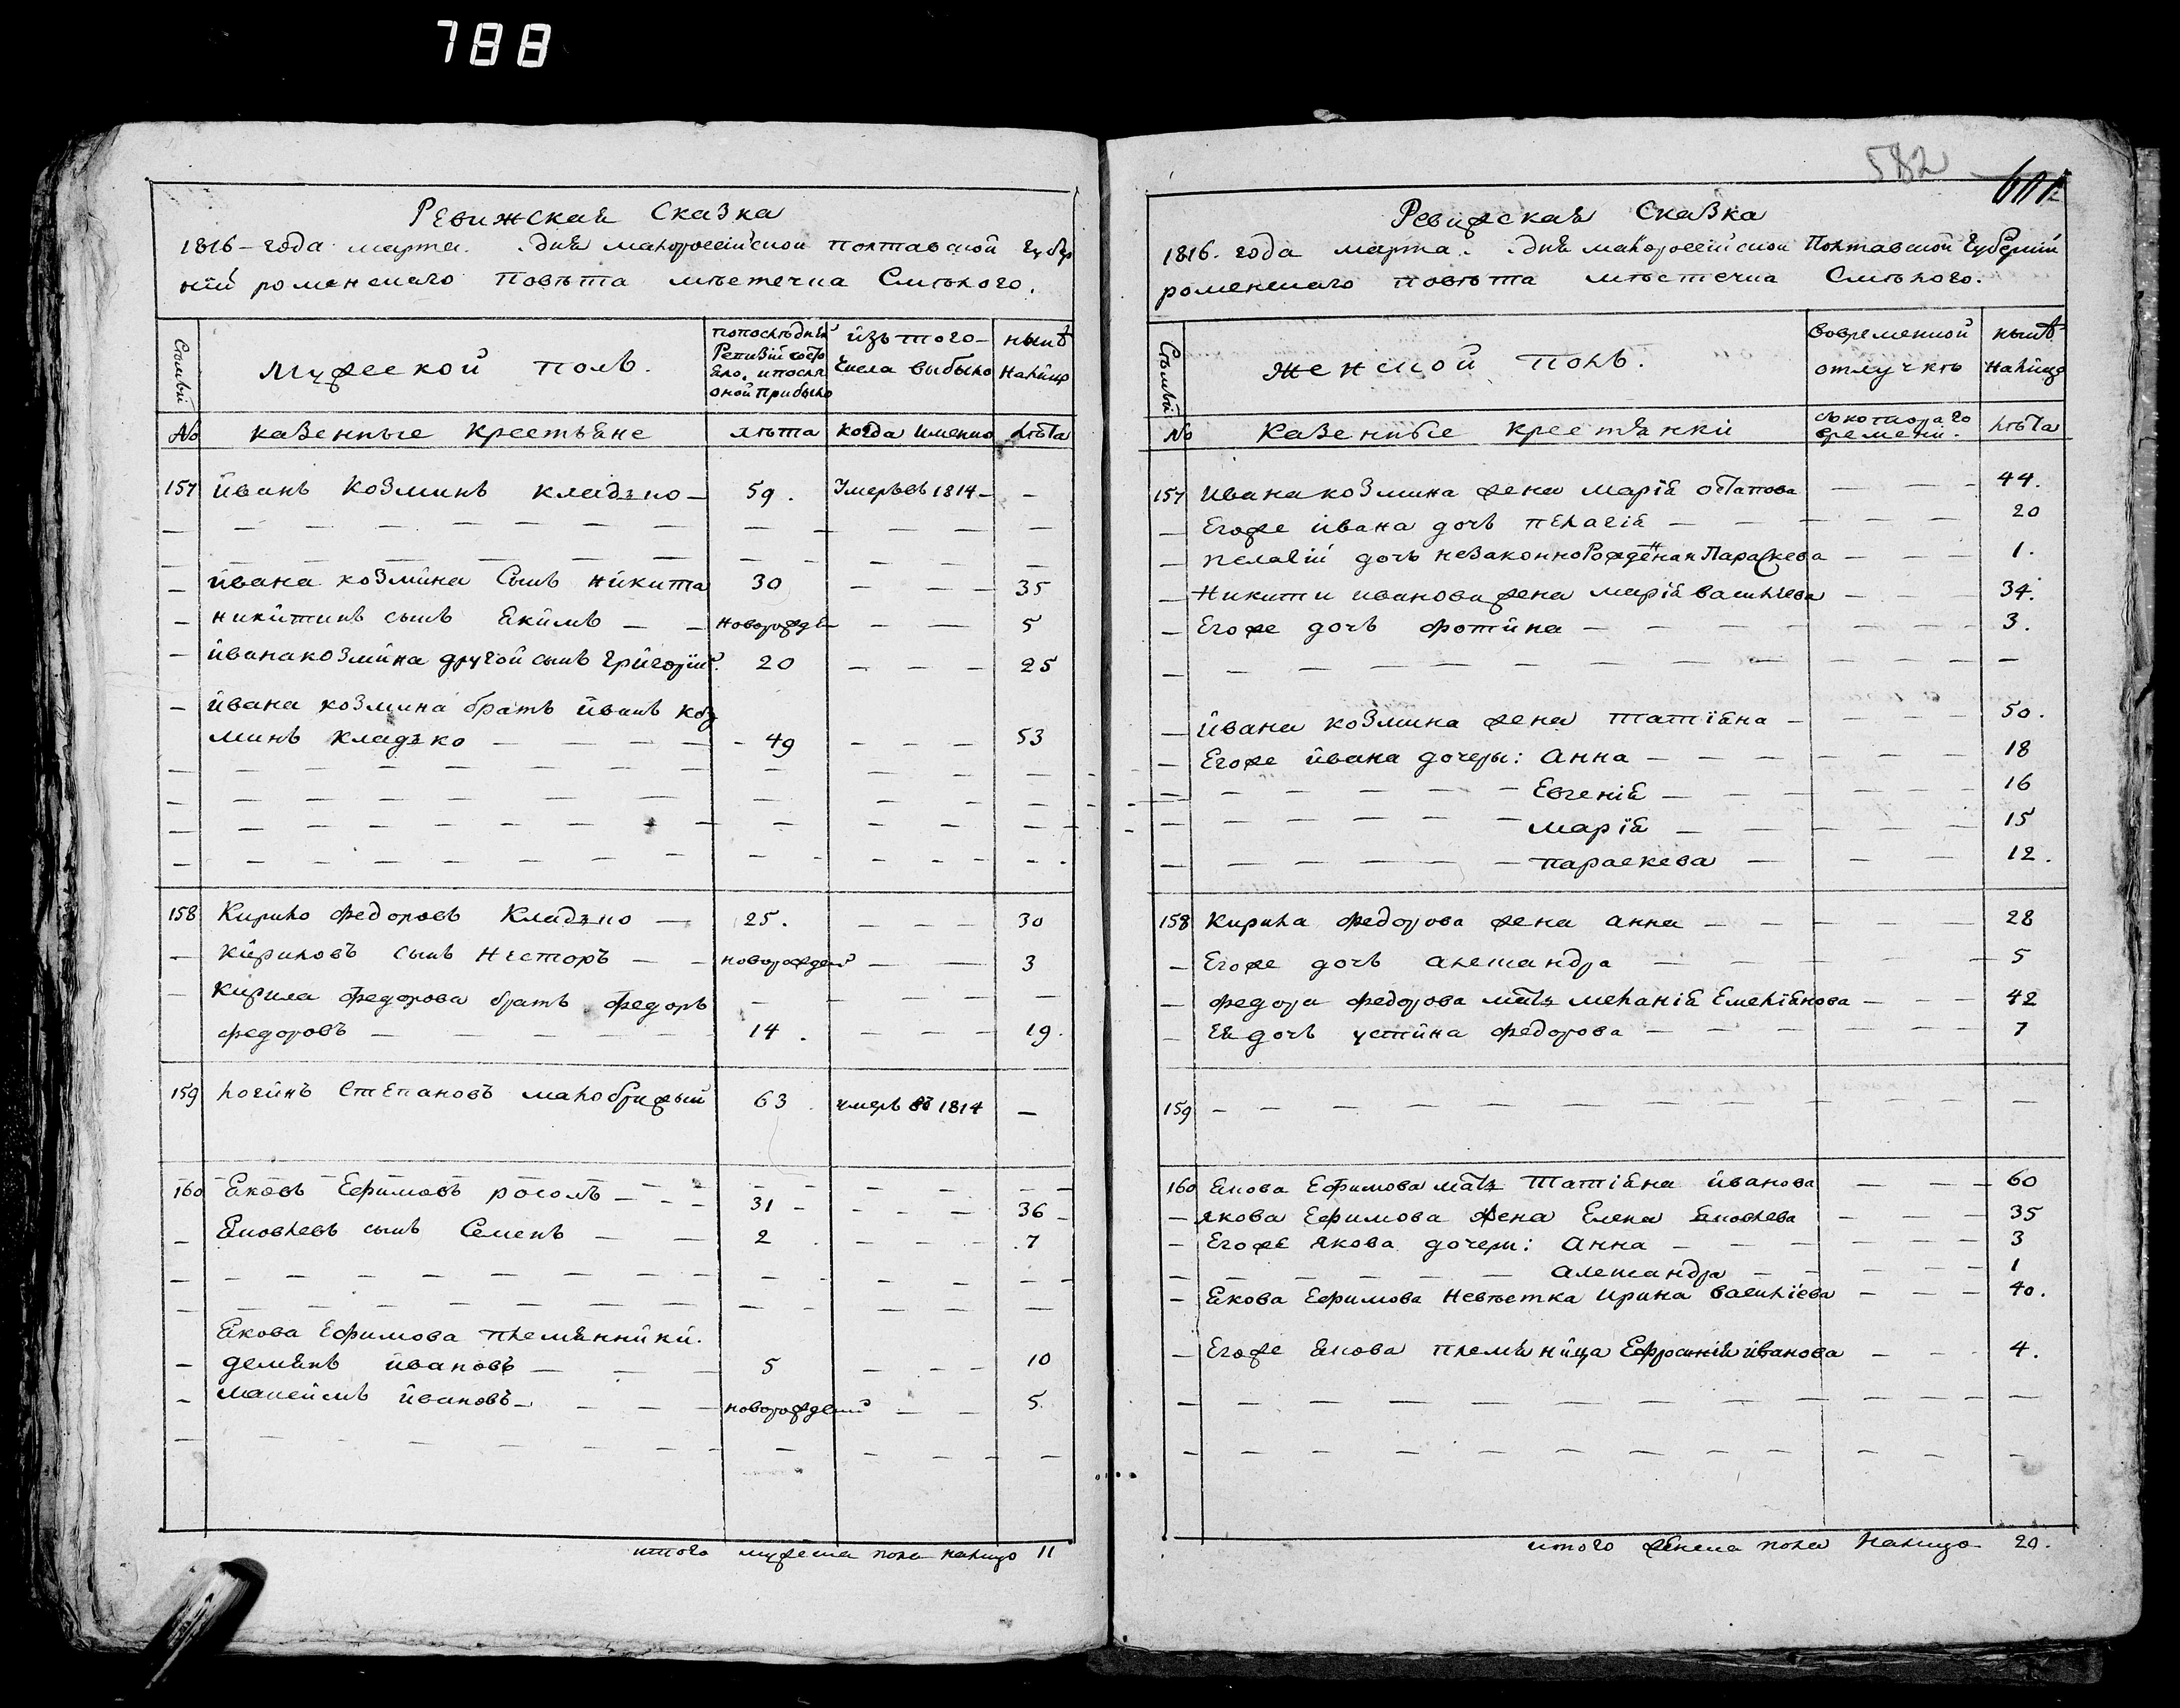 788
Ревижская Сказка
1816 – года марта. дня малороссійской полтавской губер
ніи роменскаго Повѣта мѣстечка Смѣлого.
Семьи
Мужеской полъ.
попослѣдней
Ревизіи состо
яло, и послѣ
оной прибыло
изъ того
числа выбыло
нынѣ
налицо
№ казенные крестьяне лѣта когда именно лѣта
157 Иванъ Козминъ Кладько – 59. Умеръ въ 1814 – –
– Ивана козмина Сынъ Никита 30 – – – 35
– никитинъ сынъ Якимъ – – новорожде – – 5
– Ивана козмина другой сынъ Григорій. 20 – – – 25
– Ивана козмина братъ Иванъ Коз
минъ Кладько – – – – 49 – – – 53
158 Кирило Федоровъ Кладько – 25. – – – 30
– Кириловъ сынъ Несторъ – – новорожденій – – 3
– Кирила Федорова братъ Федоръ
федоровъ – – – – 14. – – – 19.
159 Логинъ Степановъ малобрижый 63. умеръ въ 1814 –
160 Яковъ Ефимовъ росолъ – – 31 – – – – 36 –
– Яковлевъ сынъ Семенъ – – 2 – – – 7
Якова Ефимова племянники.
– демянъ Ивановъ – – – 5 – – – 10
– Максимъ Ивановъ – – – – новорожденій – – 5.
итого мужеска пола налицо 11
582
601
Ревижская Сказка
1816. года марта. дня малороссійской Полтавской Губерніи
роменскаго повѣта мѣстечка Смѣлого.
Семьи
Женской полъ.
вовременной
отлучкѣ
нынѣ
налицо
№ Казенные крестянки съ котораго
времени. лѣта
157 Ивана козмина жена Марія остапова – – – 44.
– Егоже Ивана дочь пелагія – – – – – – 20
– пелагіи дочь незаконнорожденная Параскева – – – 1.
– Никити иванова жена марія васильева – – – 34.
– Егоже дочь фотина – – – – – – – 3.
– Ивана козмина жена татіяна – – – – 50.
– Егоже Ивана дочеры: Анна – – – – – – 18
– – – – – – Евгенія – – – – – 16
– – – – – – Марія – – – – – 15
– – – – – – параскева – – – 12.
158 Кирила Федорова жена анна – – – – – 28
– Егоже дочь александра – – – – – 5
– федора федорова мать меланія Емеліянова – – – 42
– Ея дочь устина федорова – – – – – 7
159 – – – – – – – – – – – – –
160 Якова Ефимова мать Татіяна Иванова – – – 60
– якова Ефимова Жена Елена Яковлева – – – 35
– Егоже якова дочеры: Анна – – – – – – 3
– – – – – – александра – – – – – 1
– Якова Ефимова невѣстка Ирина васильева – – – 40.
– Егоже Якова племяница Ефросинія Иванова – – – 4.
итого женска пола Налицо 20.